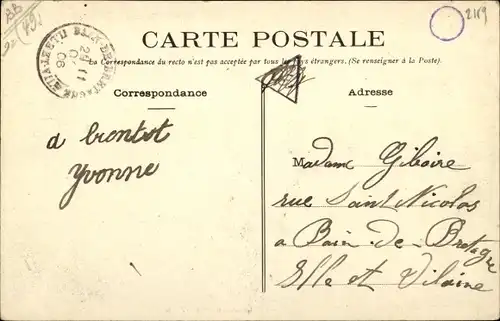 AB
2189
CARTE POSTALE
La Correspondance du recto n'est pas acceptée par tous les pays étrangers. (Se renseigner à la Poste).
Correspondance
Adresse
a bientot
Yvonne
Madame Giboire
rue Saint Nicolas
a Bain-de-Bretagne
Ille et Vilaine